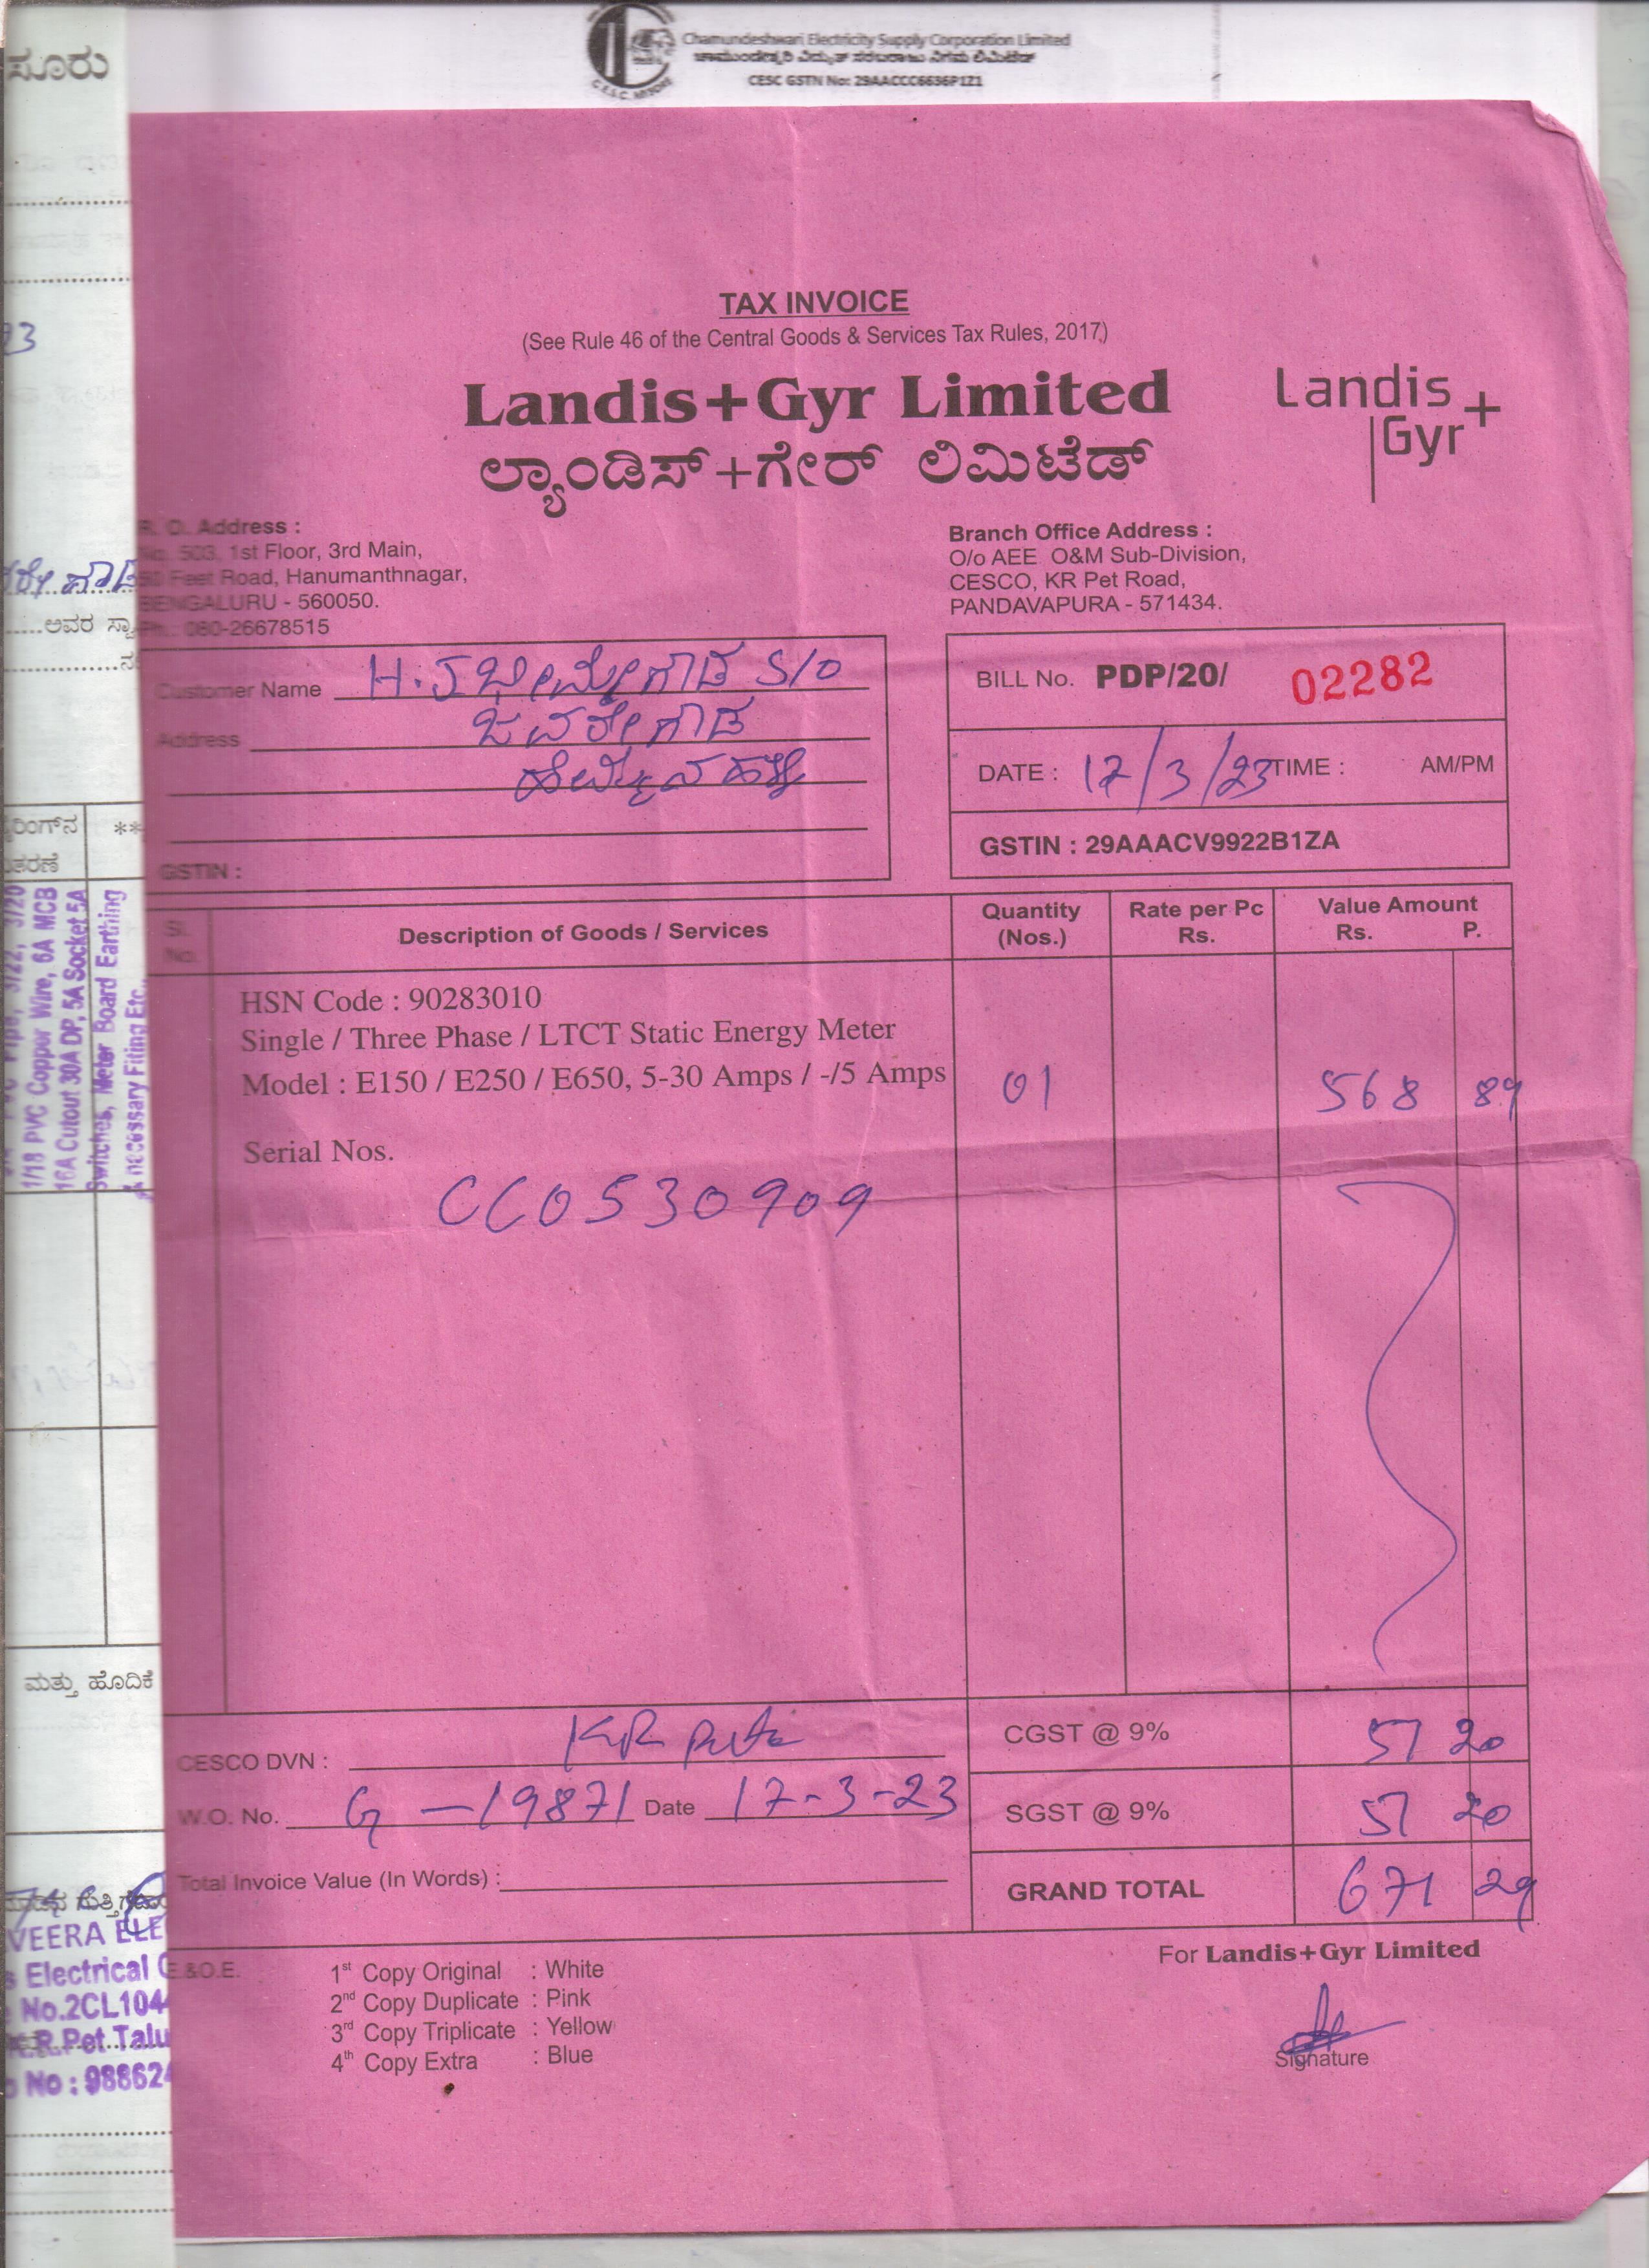 Chamundeshwari Electricity Supply Corporation Limited
ಚಾಮುಂಡೇಶ್ವರಿ ವಿದ್ಯುತ್ ಸರಬರಾಜು ನಿಗಮ ಲಿಮಿಟೆಡ್
CESC GSTN No: 29AACCC6636P1Z1
TAX INVOICE
(See Rule 46 of the Central Goods & Services Tax Rules, 2017)
Landis+Gyr Limited
ಲ್ಯಾಂಡಿಸ್+ಗೇರ್ ಲಿಮಿಟೆಡ್
Landis
Gyr+
R. O. Address :
No. 503, 1st Floor, 3rd Main,
50 Feet Road, Hanumanthnagar,
BENGALURU - 560050.
Ph.: 080-26678515
Branch Office Address :
O/o AEE O&M Sub-Division,
CESCO, KR Pet Road,
PANDAVAPURA - 571434.
Customer Name H.J ಭೀಮೇಗೌಡ S/O
Address ಜವರೇಗೌಡ
GSTIN :
BILL No. PDP/20/ 02282
DATE : 17/3/23 TIME : AM/PM
GSTIN : 29AAACV9922B1ZA
Sl. No. Description of Goods / Services Quantity (Nos.) Rate per Pc Rs. Value Amount Rs. P.
HSN Code : 90283010
Single / Three Phase / LTCT Static Energy Meter
Model : E150 / E250 / E650, 5-30 Amps / -/5 Amps 01 568 89
Serial Nos.
CC0530909
CESCO DVN : KR
CGST @ 9% 51 20
W.O. No. G-19871 Date 17-3-23
SGST @ 9% 51 20
Total Invoice Value (In Words) :
GRAND TOTAL 671 29
E.&O.E.
1st Copy Original : White
2nd Copy Duplicate : Pink
3rd Copy Triplicate : Yellow
4th Copy Extra : Blue
For Landis+Gyr Limited
Signature
ಸೂರು
ಅವರ
1/18 PVC Copper Wire, 6A MCB
16A Cutout 30A DP, 5A Socket 5A
Switches, Meter Board Earthing
necessary Fiting Etc.
ಮತ್ತು ಹೊದಿಕೆ
VEERA ELE
Electrical
No.2CL104
K.R.Pet Talu
No : 98862